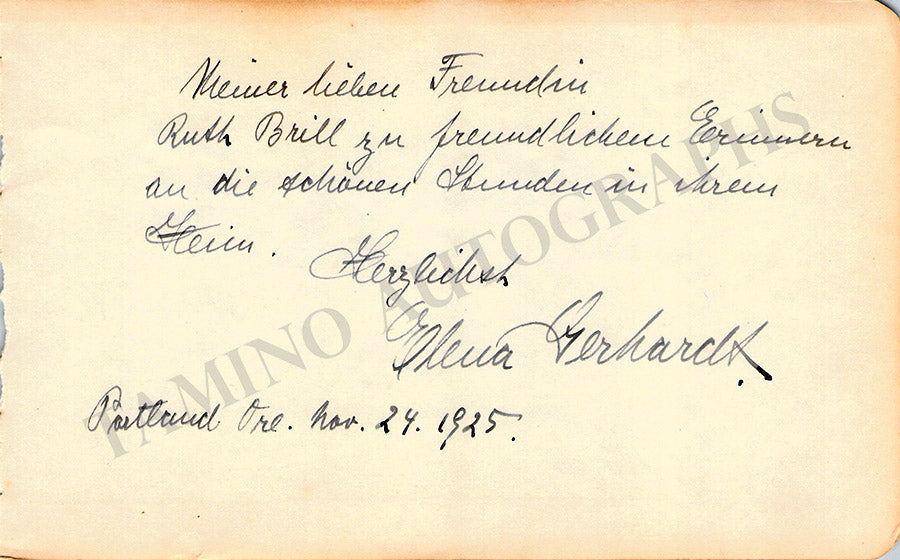 Meiner lieben Freundin
Ruth Brill zu freundlichem Erinnern
an die schönen Stunden in ihrem
Heim.
Herzlichst
Elena Gerhardt.
Portland Ore. Nov. 24. 1925.
TAMINO AUTOGRAPHS